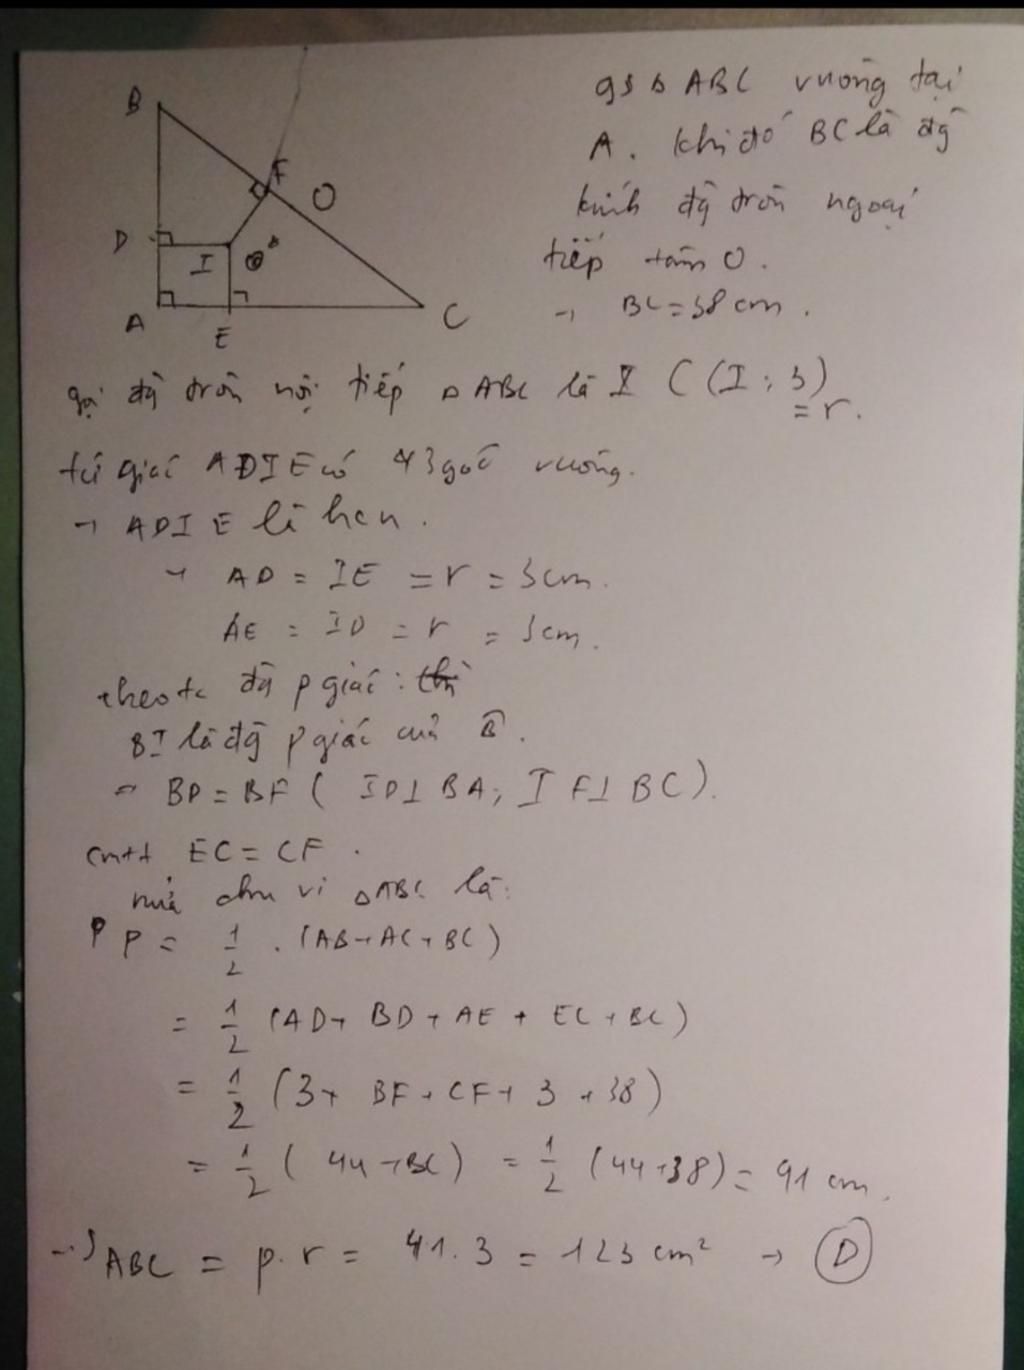 B
F
O
D
I
A
E
C
gs Δ ABC vuông tại
A. khi đó BC là đg
kính đg tròn ngoại
tiếp tâm O.
→ BC = 38 cm.
gọi đg tròn nội tiếp Δ ABC là (I; 3)
= r.
tứ giác ADIE có 3 góc vuông.
→ ADIE là hcn.
→ AD = IE = r = 3cm.
AE = ID = r = 3cm.
theo tc đg p giác:
BI là đg p giác của B̂.
→ BD = BF ( ID⊥BA; IF⊥BC).
cmtt EC = CF.
nửa chu vi Δ ABC là:
P p = 1/2 . (AB + AC + BC)
= 1/2 (AD + BD + AE + EC + BC)
= 1/2 (3 + BF + CF + 3 + 38)
= 1/2 ( 44 + BC) = 1/2 (44+38) = 41 cm.
→ S ABC = p.r = 41.3 = 123 cm² → D